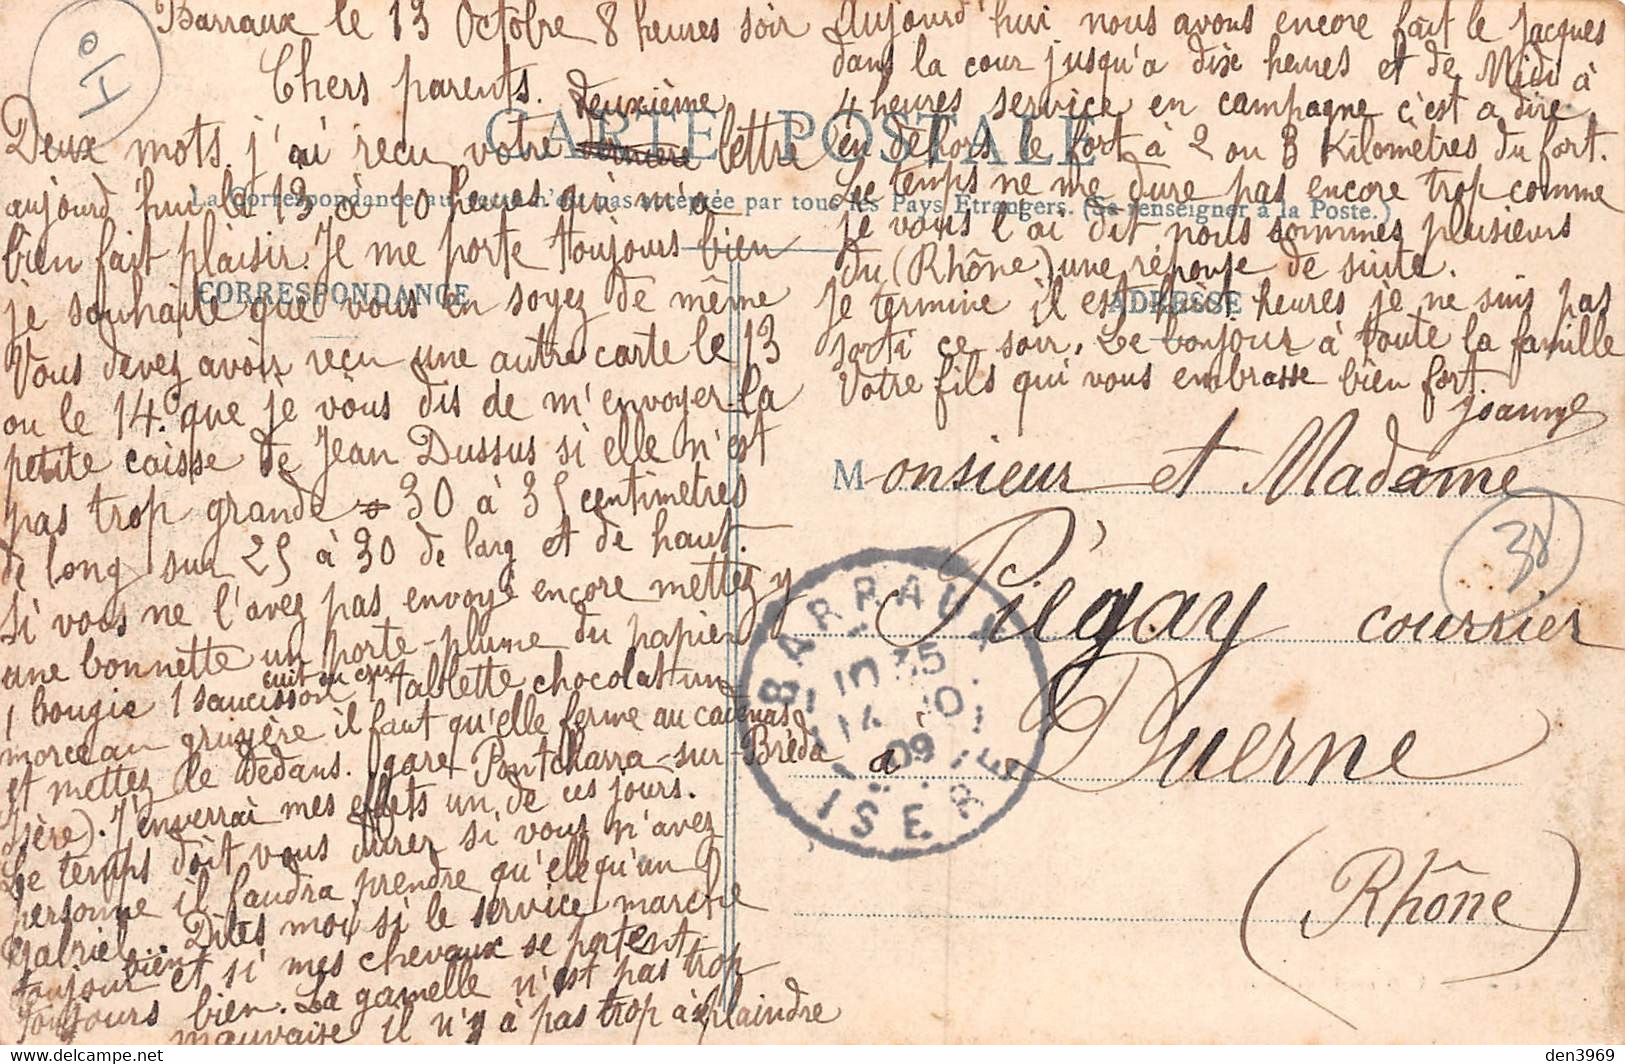 Barraux le 13 Octobre 8 heures soir
Chers parents.
Deux mots. j'ai reçu votre deuxième lettre
aujourd'hui le 13 à 10 heures qui m'a
bien fait plaisir. Je me porte toujours bien
je souhaite que vous en soyez de même
Vous devez avoir reçu une autre carte le 13
ou le 14. que je vous dis de m'envoyer la
petite caisse de Jean Dussus si elle n'est
pas trop grande 30 à 35 centimetres
de long sur 25 à 30 de larg et de haut.
Si vous ne l'avez pas envoyé encore mettez y
une bonnette un porte-plume du papier
1 bougie 1 saucisson cuit ou cru 1 tablette chocolat un
morceau gruyère il faut qu'elle ferme au cadenas
et mettez le dedans. gare Pontcharra-sur-Bréda
Isère). J'enverrai mes effets un de ces jours.
Le temps doit vous durer si vous n'avez
personne il faudra prendre quelqu'un
Gabriel.. Dites moi si le service marche
toujour bien et si mes chevaux se portent
toujours bien. La gamelle n'est pas trop
mauvaise il n'y à pas trop à s'plaindre
Aujourd'hui nous avons encore fait le Jacques
dans la cour jusqu'a dix heures et de Midi à
4 heures service en campagne c'est a dire
en dehors le fort à 2 ou 3 Kilomètres du fort.
Le temps ne me dure pas encore trop comme
je vous l'ai dit nous sommes plusieurs
du (Rhône) une réponse de suite.
je termine il est huit heures je ne suis pas
sorti ce soir. Le bonjour à toute la famille
Votre fils qui vous embrasse bien fort.
Joanny
CARTE POSTALE
La Correspondance au recto n'est pas acceptée par tous les Pays Etrangers. (Se renseigner à la Poste.)
CORRESPONDANCE
ADRESSE
Monsieur et Madame
Piégay courrier
à Duerne
(Rhône)
BARRAUX
10 35
14 10
09
ISERE
38
den3969